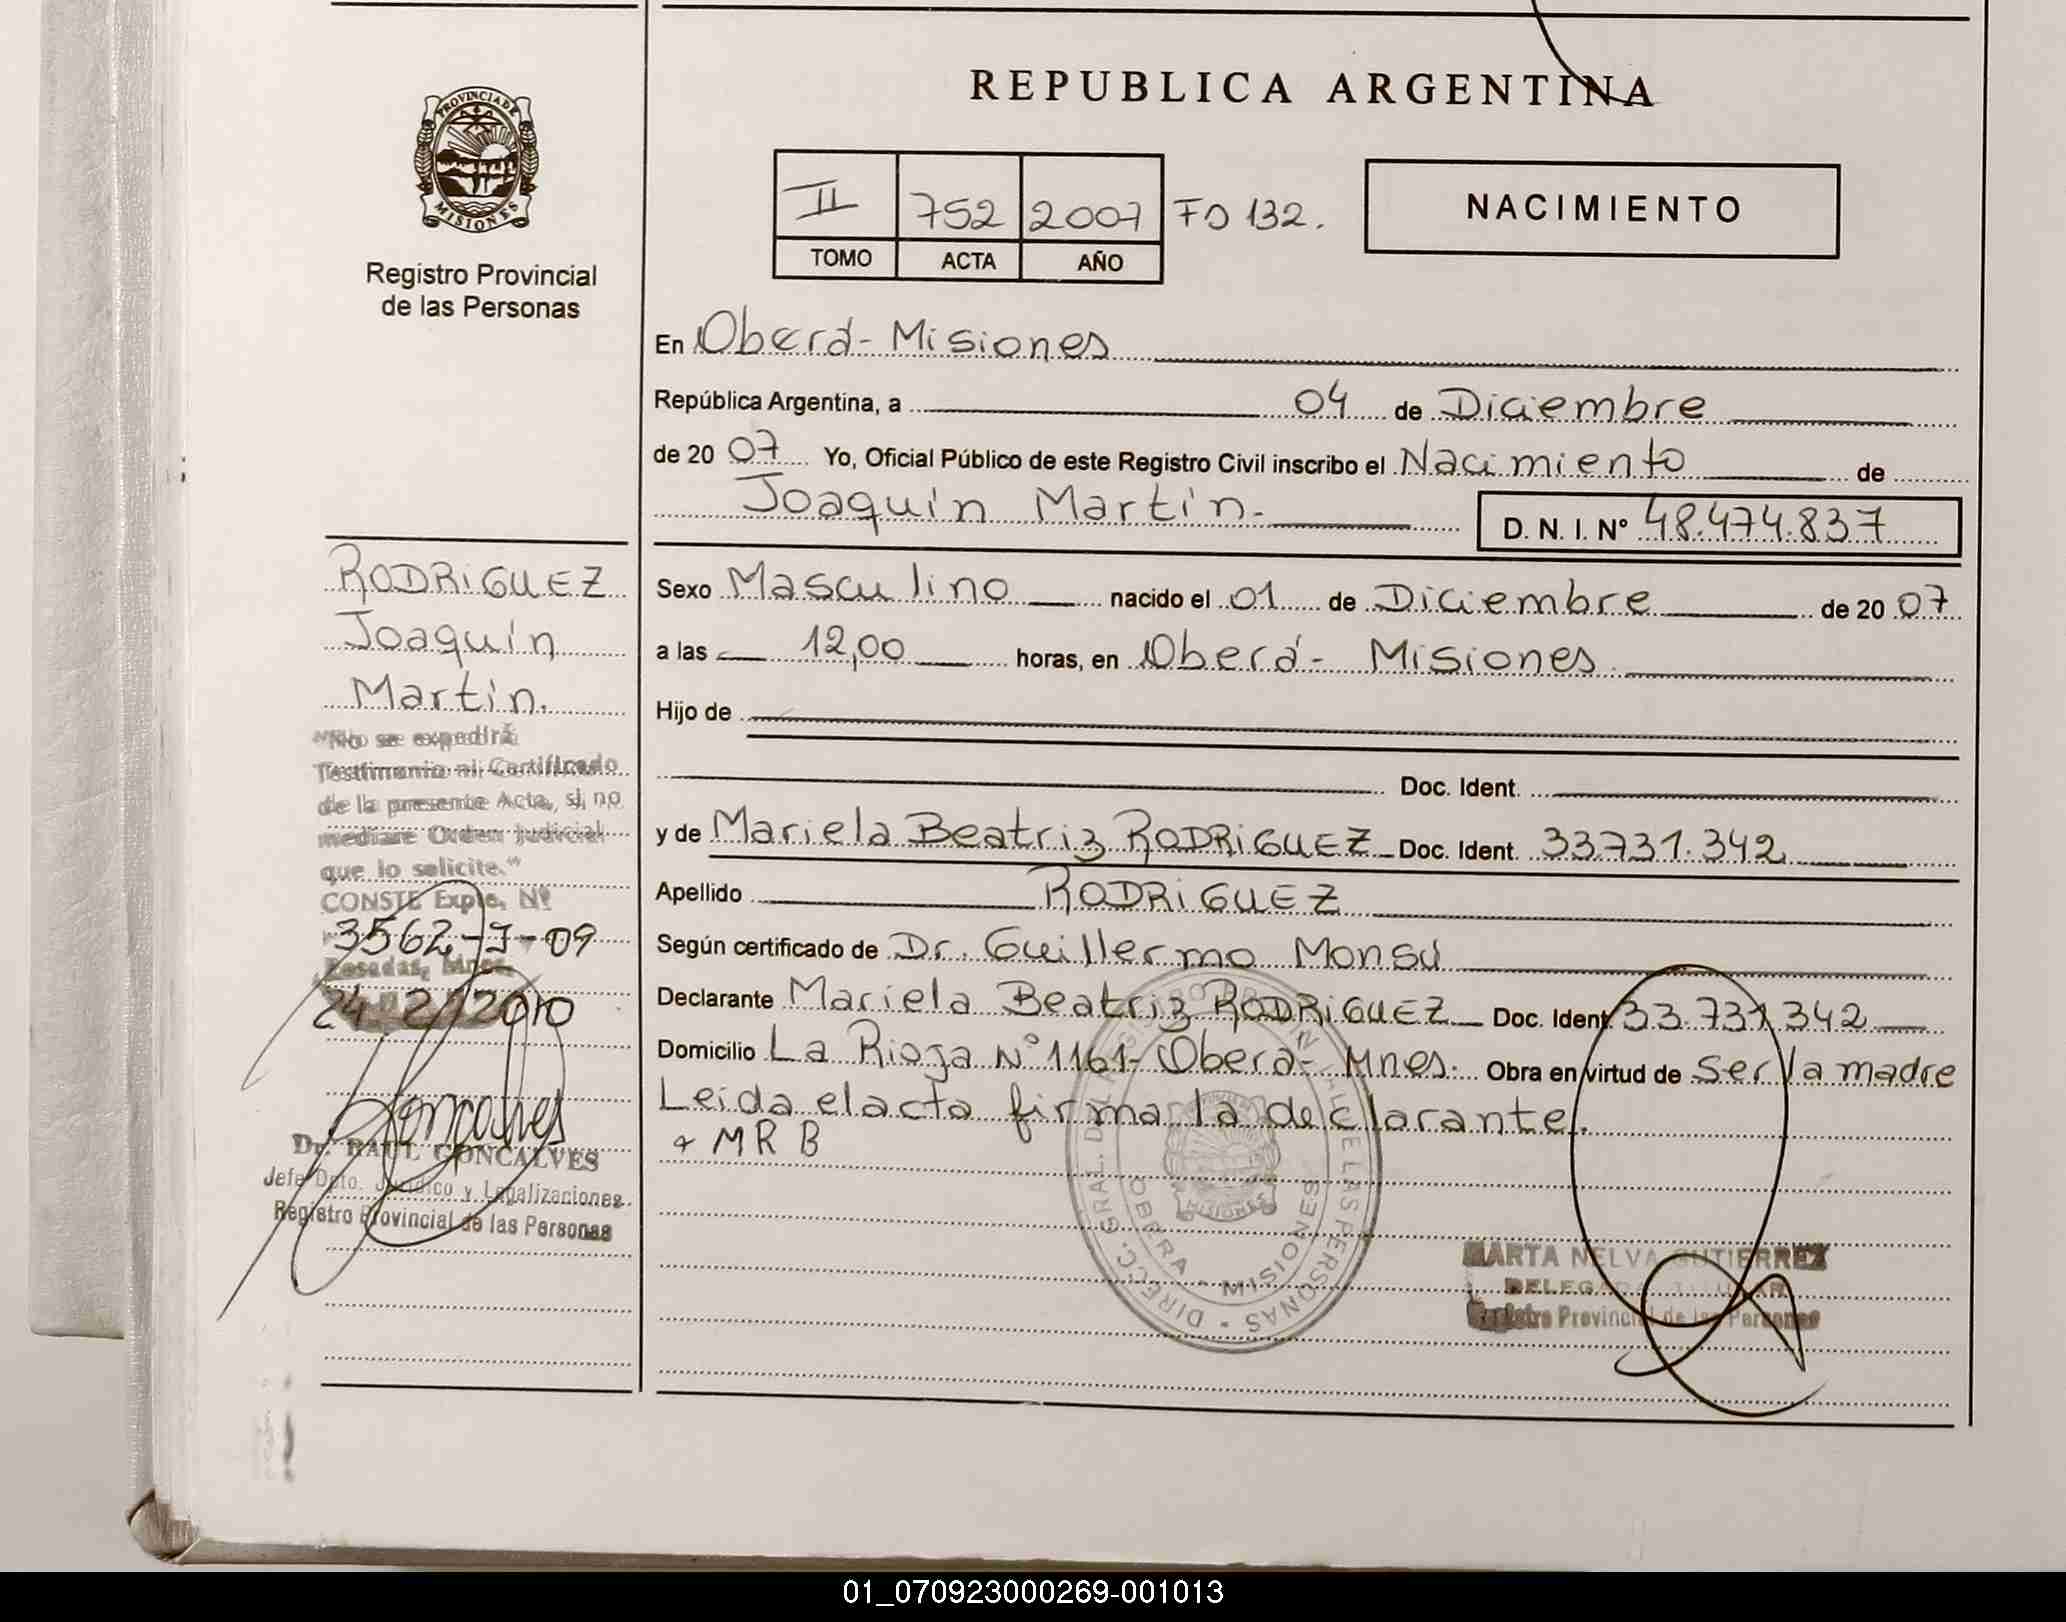 REPUBLICA ARGENTINA
PROVINCIA DE
MISIONES
Registro Provincial
de las Personas
II 752 2007 Fo 132.
TOMO ACTA AÑO
NACIMIENTO
En Oberá - Misiones
República Argentina, a 04 de Diciembre
de 20 07 Yo, Oficial Público de este Registro Civil inscribo el Nacimiento de
Joaquín Martín.-
D. N. I. Nº 48.474.837
Sexo Masculino nacido el 01 de Diciembre de 20 07
a las 12,00 horas, en Oberá - Misiones
Hijo de
Doc. Ident.
y de Mariela Beatriz RODRIGUEZ Doc. Ident. 33.731.342
Apellido RODRIGUEZ
Según certificado de Dr. Guillermo Monsú
Declarante Mariela Beatriz RODRIGUEZ Doc. Ident. 33.731.342
Domicilio La Rioja Nº 1161 - Oberá - Mnes. Obra en virtud de ser la madre
Leida el acta firma la declarante.
+ MRB
RODRIGUEZ
Joaquín
Martín.
"No se expedirá
Testimonio ni Certificado
de la presente Acta, si no
mediare Orden Judicial
que lo solicite."
CONSTE Expte. Nº
3562-J-09
Posadas, Mnes.
24 2010
Goncalves
Dr. RAUL GONCALVES
Jefe Dpto. Jurídico y Legalizaciones
Registro Provincial de las Personas
DIRECC. GRAL. DE LAS PERSONAS
OBERA - MISIONES
MISIONES
MARTA NELVA GUTIERREZ
DELEGADA TITULAR
Registro Provincial de las Personas
01_070923000269-001013